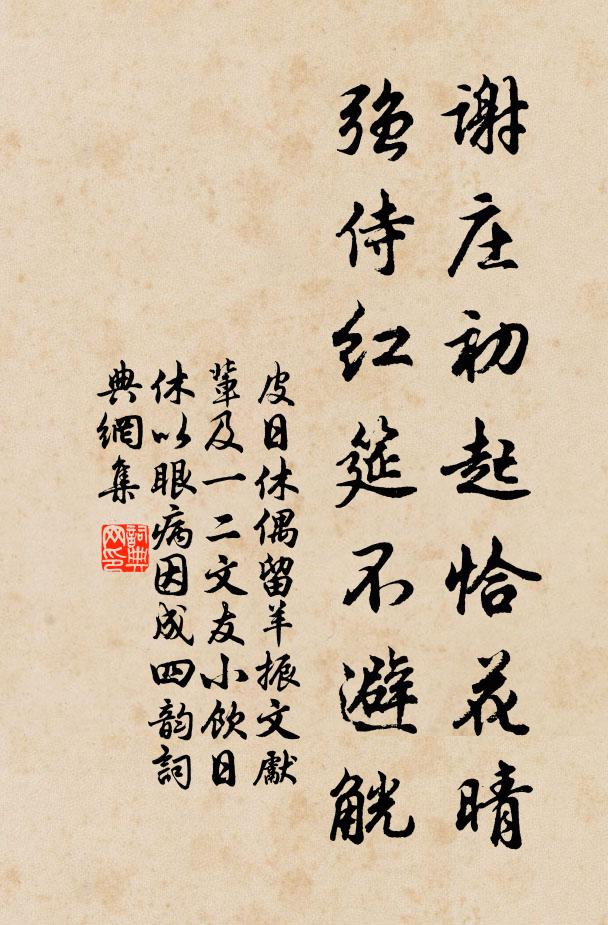 谢庄初起恰花晴
强侍红筵不避觥
皮日休偶留羊振文獻
輩及一二文友小飲日
休以眼病因成四韵詞
典網集
詞典
网印